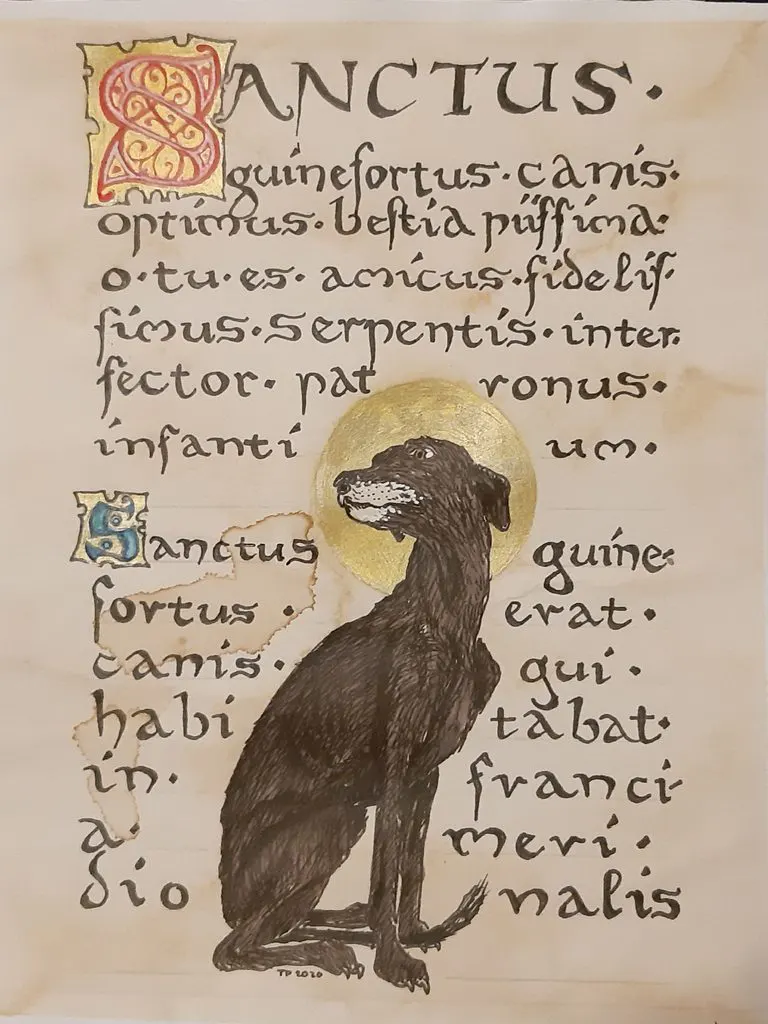 SANCTUS·
guinefortus·canis·
optimus·bestia piissima·
o·tu·es·amicus·fidelis-
simus·Serpentis·inter-
fector·pat ronus·
infanti um·
Sanctus guine-
fortus· erat·
canis· qui·
habi tabat·
in· franci-
a· meri·
dio nalis
TP 2020